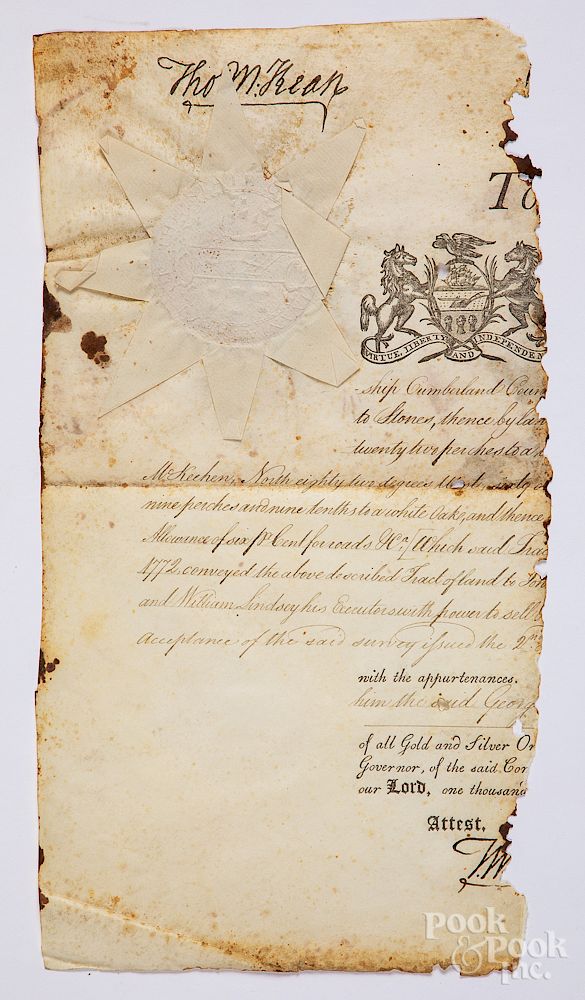 Tho M:Kean
To
VIRTUE, LIBERTY AND INDEPENDEN
-ship Cumberland Coun
to Stones, thence by lan
twenty two perches to a
McKeehen, North eighty two degrees West,
nine perches and nine tenths to a white Oak, and thence
Allowance of six pr Cent for roads &ca/ Which said Trac
1772, conveyed the above described Tract of land to
and William Lindsey his Executors with power to sell
acceptance of the said survey issued the 2nd
with the appurtenances.
him the said Georg
of all Gold and Silver Or
Governor, of the said Com
our Lord, one thousand
Attest,
T.M
POOK & POOK inc.